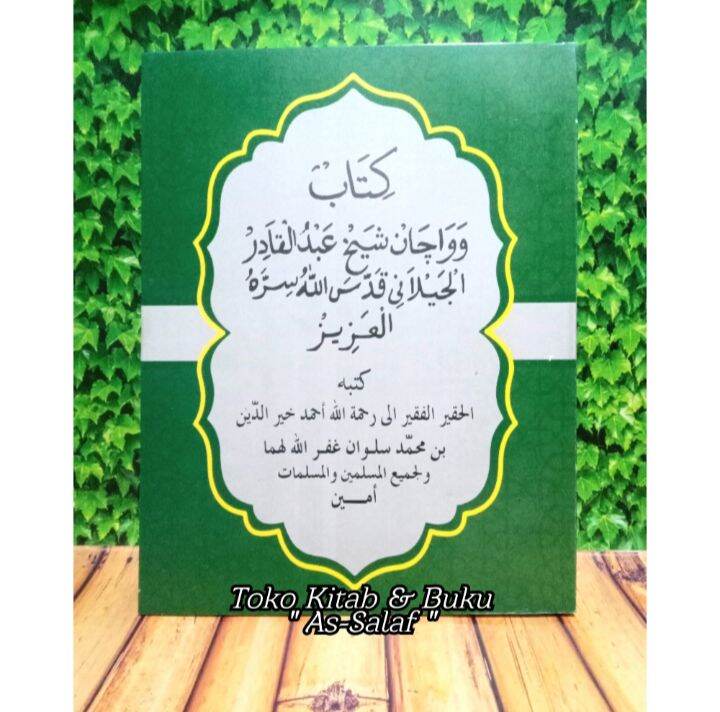 كِتَابْ
وَوَاچَانْ شَيْخْ عَبْدُ الْقَادِرْ
الْجَيْلَانِيْ قَدَّسَ اللّٰهُ سِرَّهُ
الْعَزِيْزْ
كتبه
الحقير الفقير الى رحمة الله أحمد خير الدّين
بن محمّد سلوان غفر الله لهما
ولجميع المسلمين والمسلمات
أمــين
Toko Kitab & Buku
" As-Salaf "